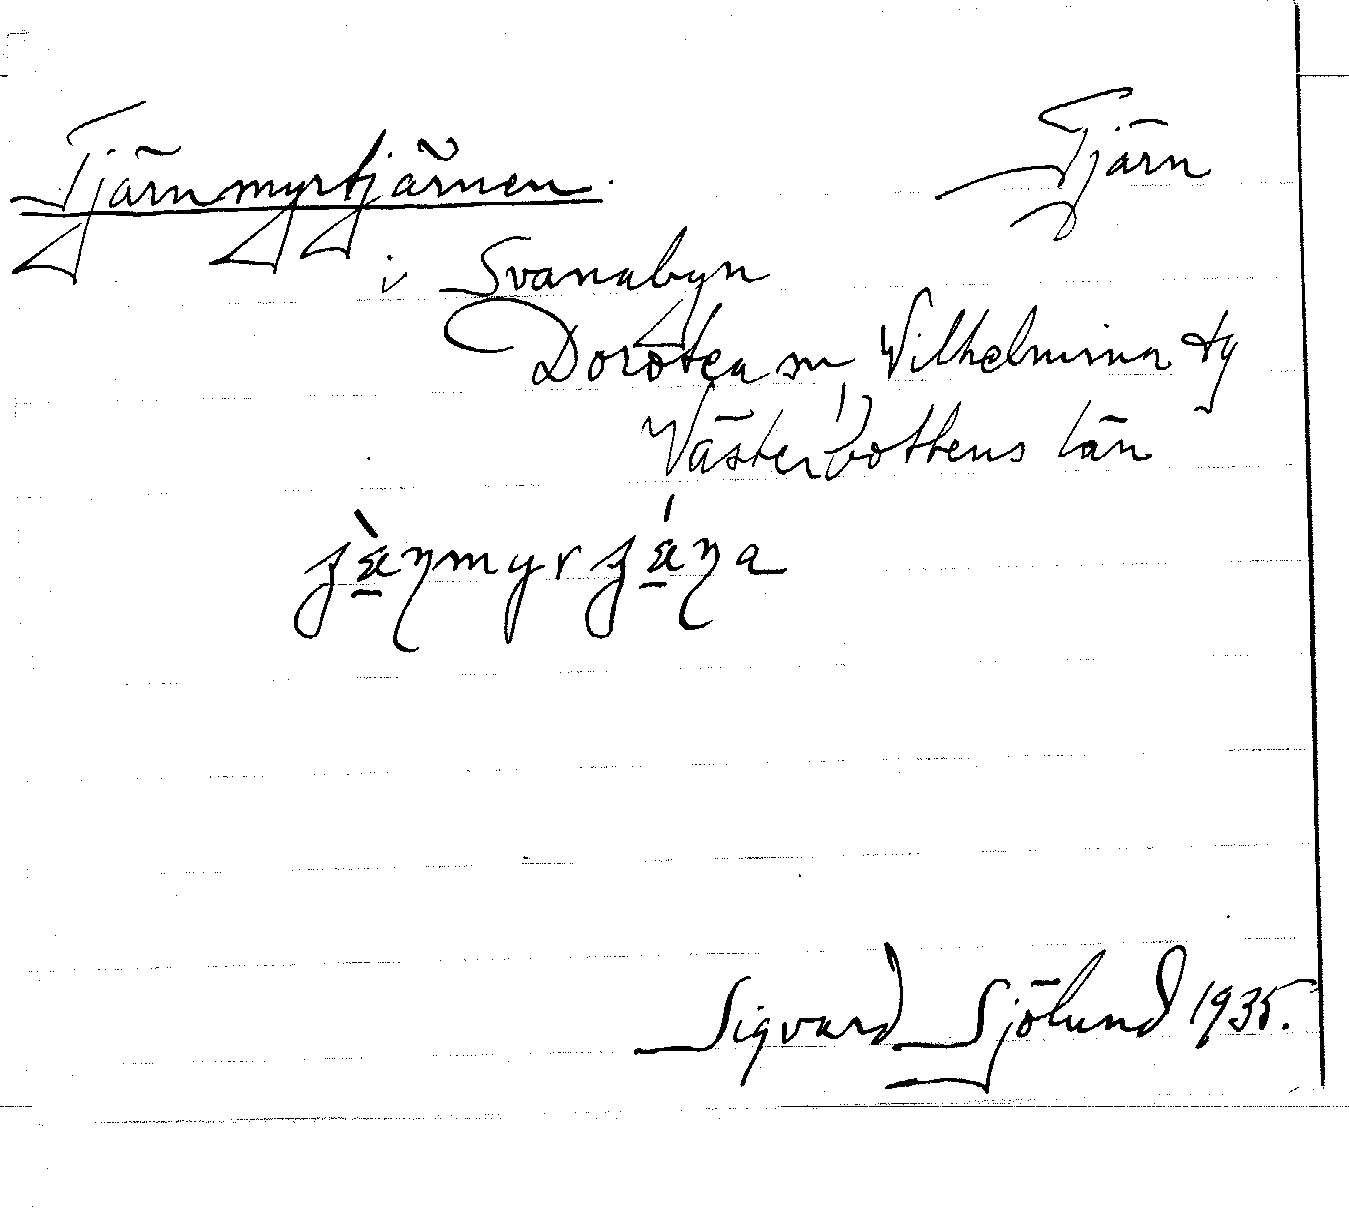 Tjärnmyrtjärnen.
Tjärn
i Svanabyn
Dorotea sn, Wilhelmina tg
Västerbottens län
Sigvard Sjölund 1935.